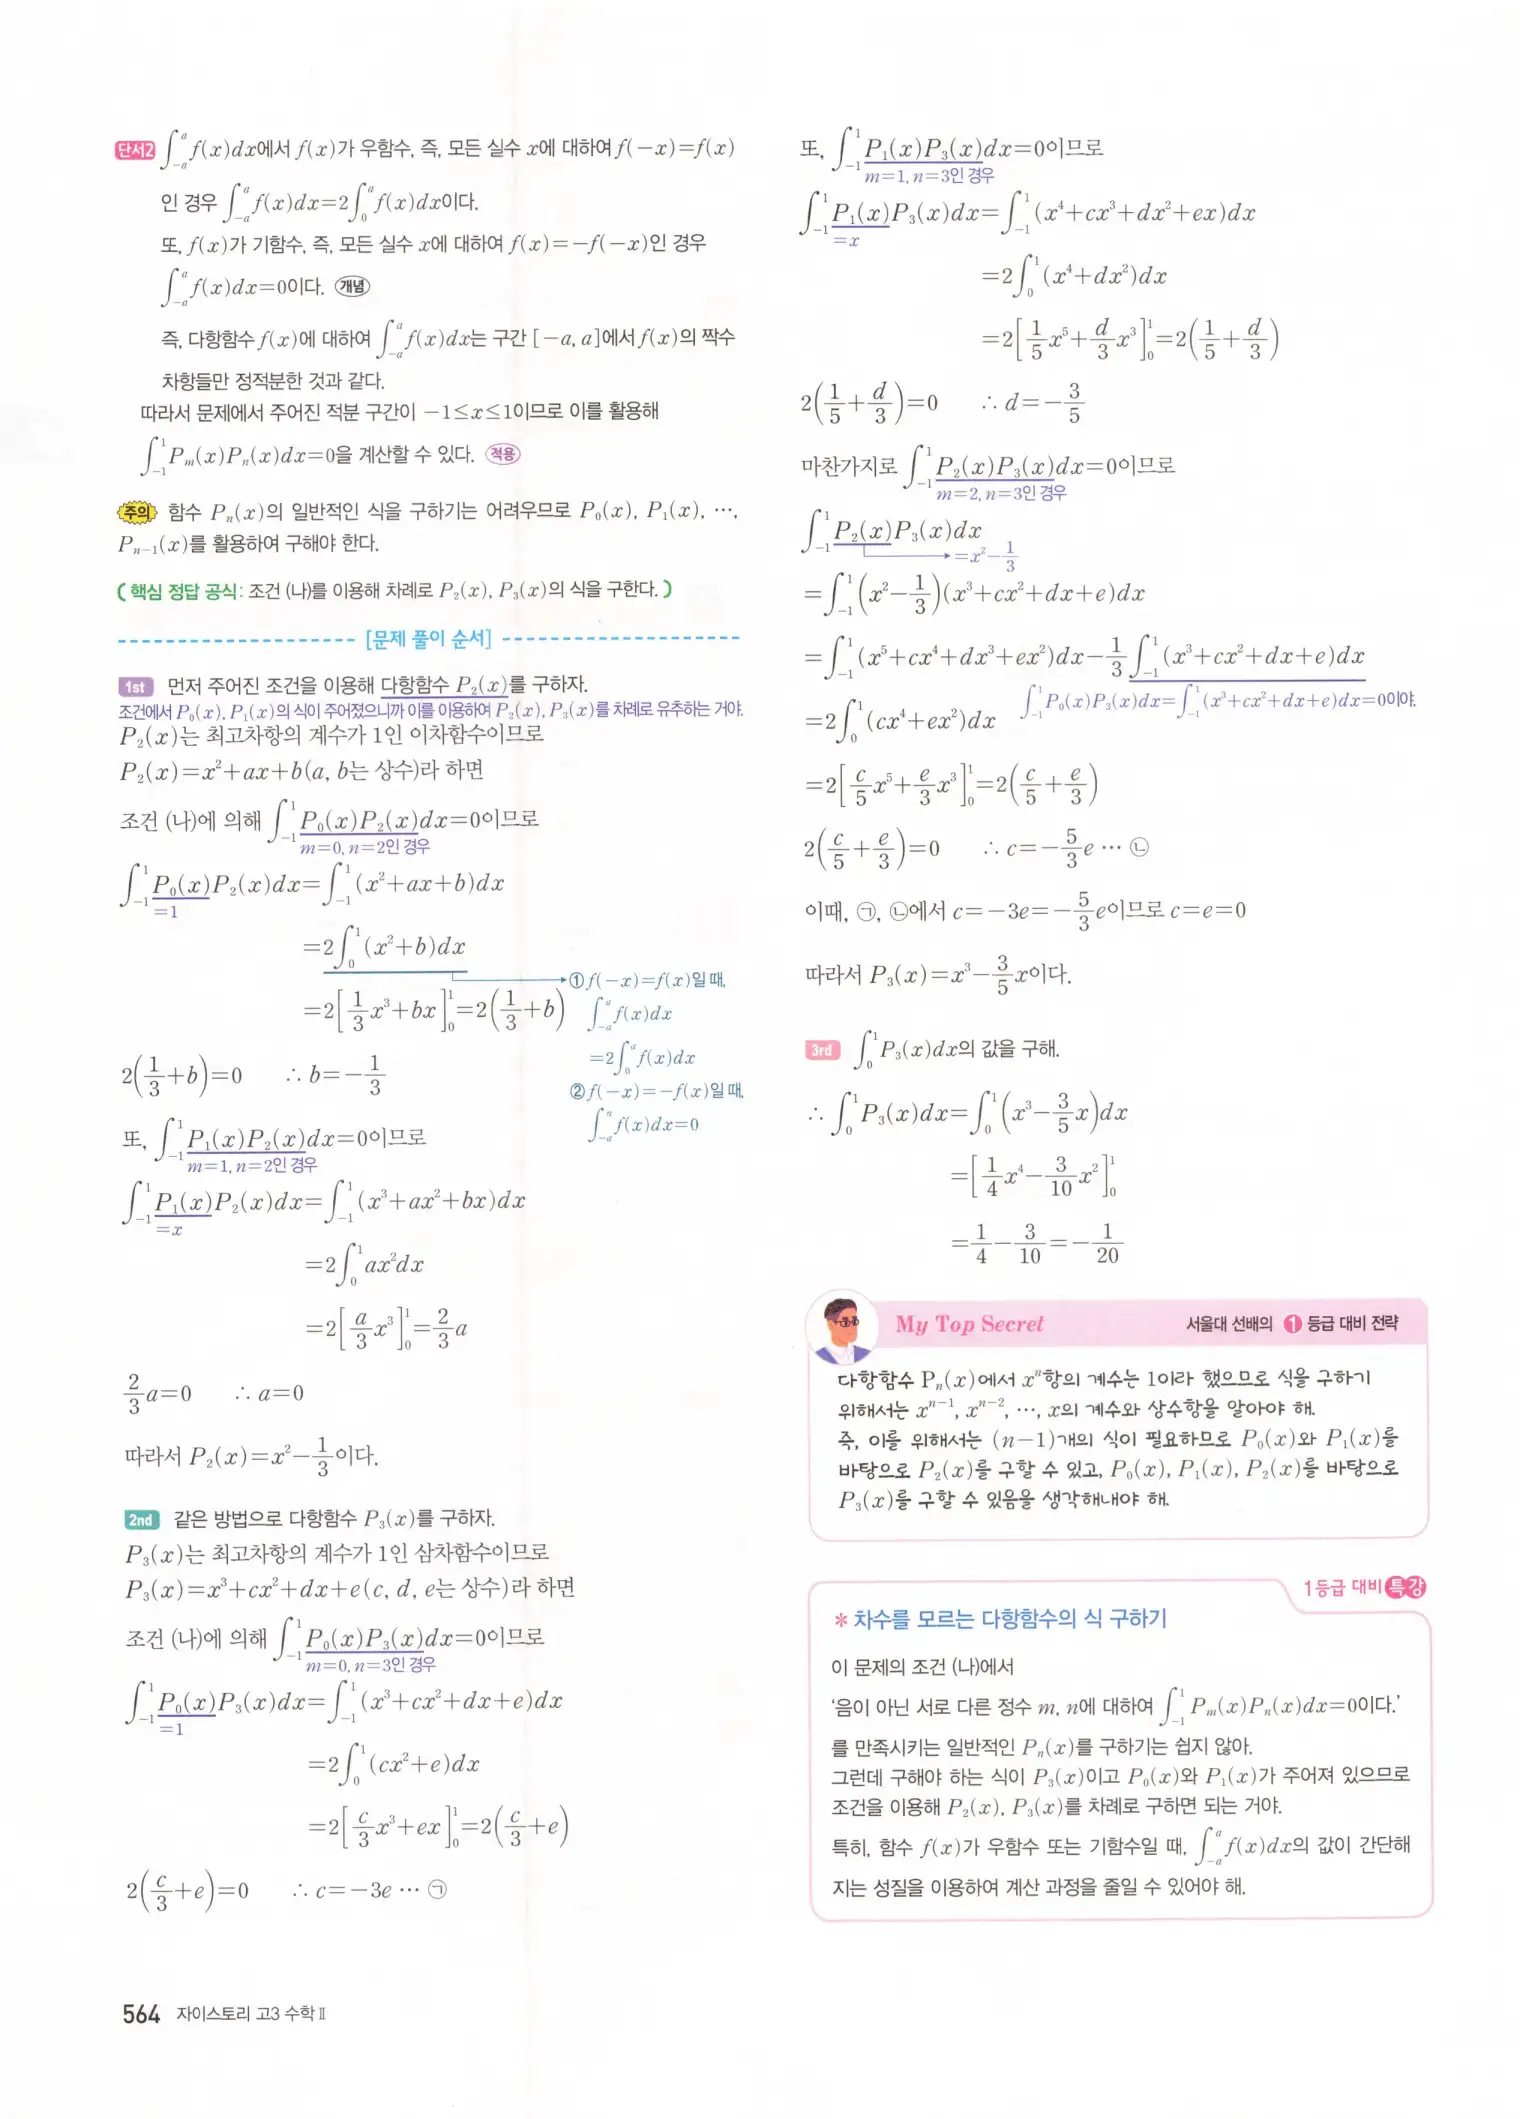 단서2 ∫_{-a}^{a} f(x)dx에서 f(x)가 우함수, 즉, 모든 실수 x에 대하여 f(-x)=f(x)
인 경우 ∫_{-a}^{a} f(x)dx=2∫_{0}^{a} f(x)dx이다.
또, f(x)가 기함수, 즉, 모든 실수 x에 대하여 f(x)=-f(-x)인 경우
∫_{-a}^{a} f(x)dx=0이다. 개념
즉, 다항함수 f(x)에 대하여 ∫_{-a}^{a} f(x)dx는 구간 [-a, a]에서 f(x)의 짝수
차항들만 정적분한 것과 같다.
따라서 문제에서 주어진 적분 구간이 -1≤x≤1이므로 이를 활용해
∫_{-1}^{1} P_m(x)P_n(x)dx=0을 계산할 수 있다. 적용
주의 함수 P_n(x)의 일반적인 식을 구하기는 어려우므로 P_0(x), P_1(x), …,
P_{n-1}(x)를 활용하여 구해야 한다.
(핵심 정답 공식: 조건 (나)를 이용해 차례로 P_2(x), P_3(x)의 식을 구한다.)
[문제 풀이 순서]
1st 먼저 주어진 조건을 이용해 다항함수 P_2(x)를 구하자.
조건에서 P_0(x), P_1(x)의 식이 주어졌으니까 이를 이용하여 P_2(x), P_3(x)를 차례로 유추하는 거야.
P_2(x)는 최고차항의 계수가 1인 이차함수이므로
P_2(x)=x²+ax+b(a, b는 상수)라 하면
조건 (나)에 의해 ∫_{-1}^{1} P_0(x)P_2(x)dx=0이므로
m=0, n=2인 경우
∫_{-1}^{1} P_0(x)P_2(x)dx=∫_{-1}^{1} (x²+ax+b)dx
=1
=2∫_{0}^{1} (x²+b)dx
=2[1/3 x³+bx]_{0}^{1}=2(1/3+b)
① f(-x)=f(x)일 때,
∫_{-a}^{a} f(x)dx
=2∫_{0}^{a} f(x)dx
② f(-x)=-f(x)일 때,
∫_{-a}^{a} f(x)dx=0
2(1/3+b)=0 ∴ b=-1/3
또, ∫_{-1}^{1} P_1(x)P_2(x)dx=0이므로
m=1, n=2인 경우
∫_{-1}^{1} P_1(x)P_2(x)dx=∫_{-1}^{1} (x³+ax²+bx)dx
=x
=2∫_{0}^{1} ax²dx
=2[a/3 x³]_{0}^{1}=2/3 a
2/3 a=0 ∴ a=0
따라서 P_2(x)=x²-1/3이다.
2nd 같은 방법으로 다항함수 P_3(x)를 구하자.
P_3(x)는 최고차항의 계수가 1인 삼차함수이므로
P_3(x)=x³+cx²+dx+e(c, d, e는 상수)라 하면
조건 (나)에 의해 ∫_{-1}^{1} P_0(x)P_3(x)dx=0이므로
m=0, n=3인 경우
∫_{-1}^{1} P_0(x)P_3(x)dx=∫_{-1}^{1} (x³+cx²+dx+e)dx
=1
=2∫_{0}^{1} (cx²+e)dx
=2[c/3 x³+ex]_{0}^{1}=2(c/3+e)
2(c/3+e)=0 ∴ c=-3e … ㉠
또, ∫_{-1}^{1} P_1(x)P_3(x)dx=0이므로
m=1, n=3인 경우
∫_{-1}^{1} P_1(x)P_3(x)dx=∫_{-1}^{1} (x⁴+cx³+dx²+ex)dx
=x
=2∫_{0}^{1} (x⁴+dx²)dx
=2[1/5 x⁵+d/3 x³]_{0}^{1}=2(1/5+d/3)
2(1/5+d/3)=0 ∴ d=-3/5
마찬가지로 ∫_{-1}^{1} P_2(x)P_3(x)dx=0이므로
m=2, n=3인 경우
∫_{-1}^{1} P_2(x)P_3(x)dx
=x²-1/3
=∫_{-1}^{1} (x²-1/3)(x³+cx²+dx+e)dx
=∫_{-1}^{1} (x⁵+cx⁴+dx³+ex²)dx-1/3 ∫_{-1}^{1} (x³+cx²+dx+e)dx
∫_{-1}^{1} P_0(x)P_3(x)dx=∫_{-1}^{1} (x³+cx²+dx+e)dx=0이야.
=2∫_{0}^{1} (cx⁴+ex²)dx
=2[c/5 x⁵+e/3 x³]_{0}^{1}=2(c/5+e/3)
2(c/5+e/3)=0 ∴ c=-5/3 e … ㉡
이때, ㉠, ㉡에서 c=-3e=-5/3 e이므로 c=e=0
따라서 P_3(x)=x³-3/5 x이다.
3rd ∫_{0}^{1} P_3(x)dx의 값을 구해.
∴ ∫_{0}^{1} P_3(x)dx=∫_{0}^{1} (x³-3/5 x)dx
=[1/4 x⁴-3/10 x²]_{0}^{1}
=1/4-3/10=-1/20
My Top Secret 서울대 선배의 1 등급 대비 전략
다항함수 P_n(x)에서 xⁿ항의 계수는 1이라 했으므로 식을 구하기
위해서는 x^{n-1}, x^{n-2}, …, x의 계수와 상수항을 알아야 해.
즉, 이를 위해서는 (n-1)개의 식이 필요하므로 P_0(x)와 P_1(x)를
바탕으로 P_2(x)를 구할 수 있고, P_0(x), P_1(x), P_2(x)를 바탕으로
P_3(x)를 구할 수 있음을 생각해내야 해.
1등급 대비 특강
* 차수를 모르는 다항함수의 식 구하기
이 문제의 조건 (나)에서
‘음이 아닌 서로 다른 정수 m, n에 대하여 ∫_{-1}^{1} P_m(x)P_n(x)dx=0이다.’
를 만족시키는 일반적인 P_n(x)를 구하기는 쉽지 않아.
그런데 구해야 하는 식이 P_3(x)이고 P_0(x)와 P_1(x)가 주어져 있으므로
조건을 이용해 P_2(x), P_3(x)를 차례로 구하면 되는 거야.
특히, 함수 f(x)가 우함수 또는 기함수일 때, ∫_{-a}^{a} f(x)dx의 값이 간단해
지는 성질을 이용하여 계산 과정을 줄일 수 있어야 해.
564 자이스토리 고3 수학Ⅱ